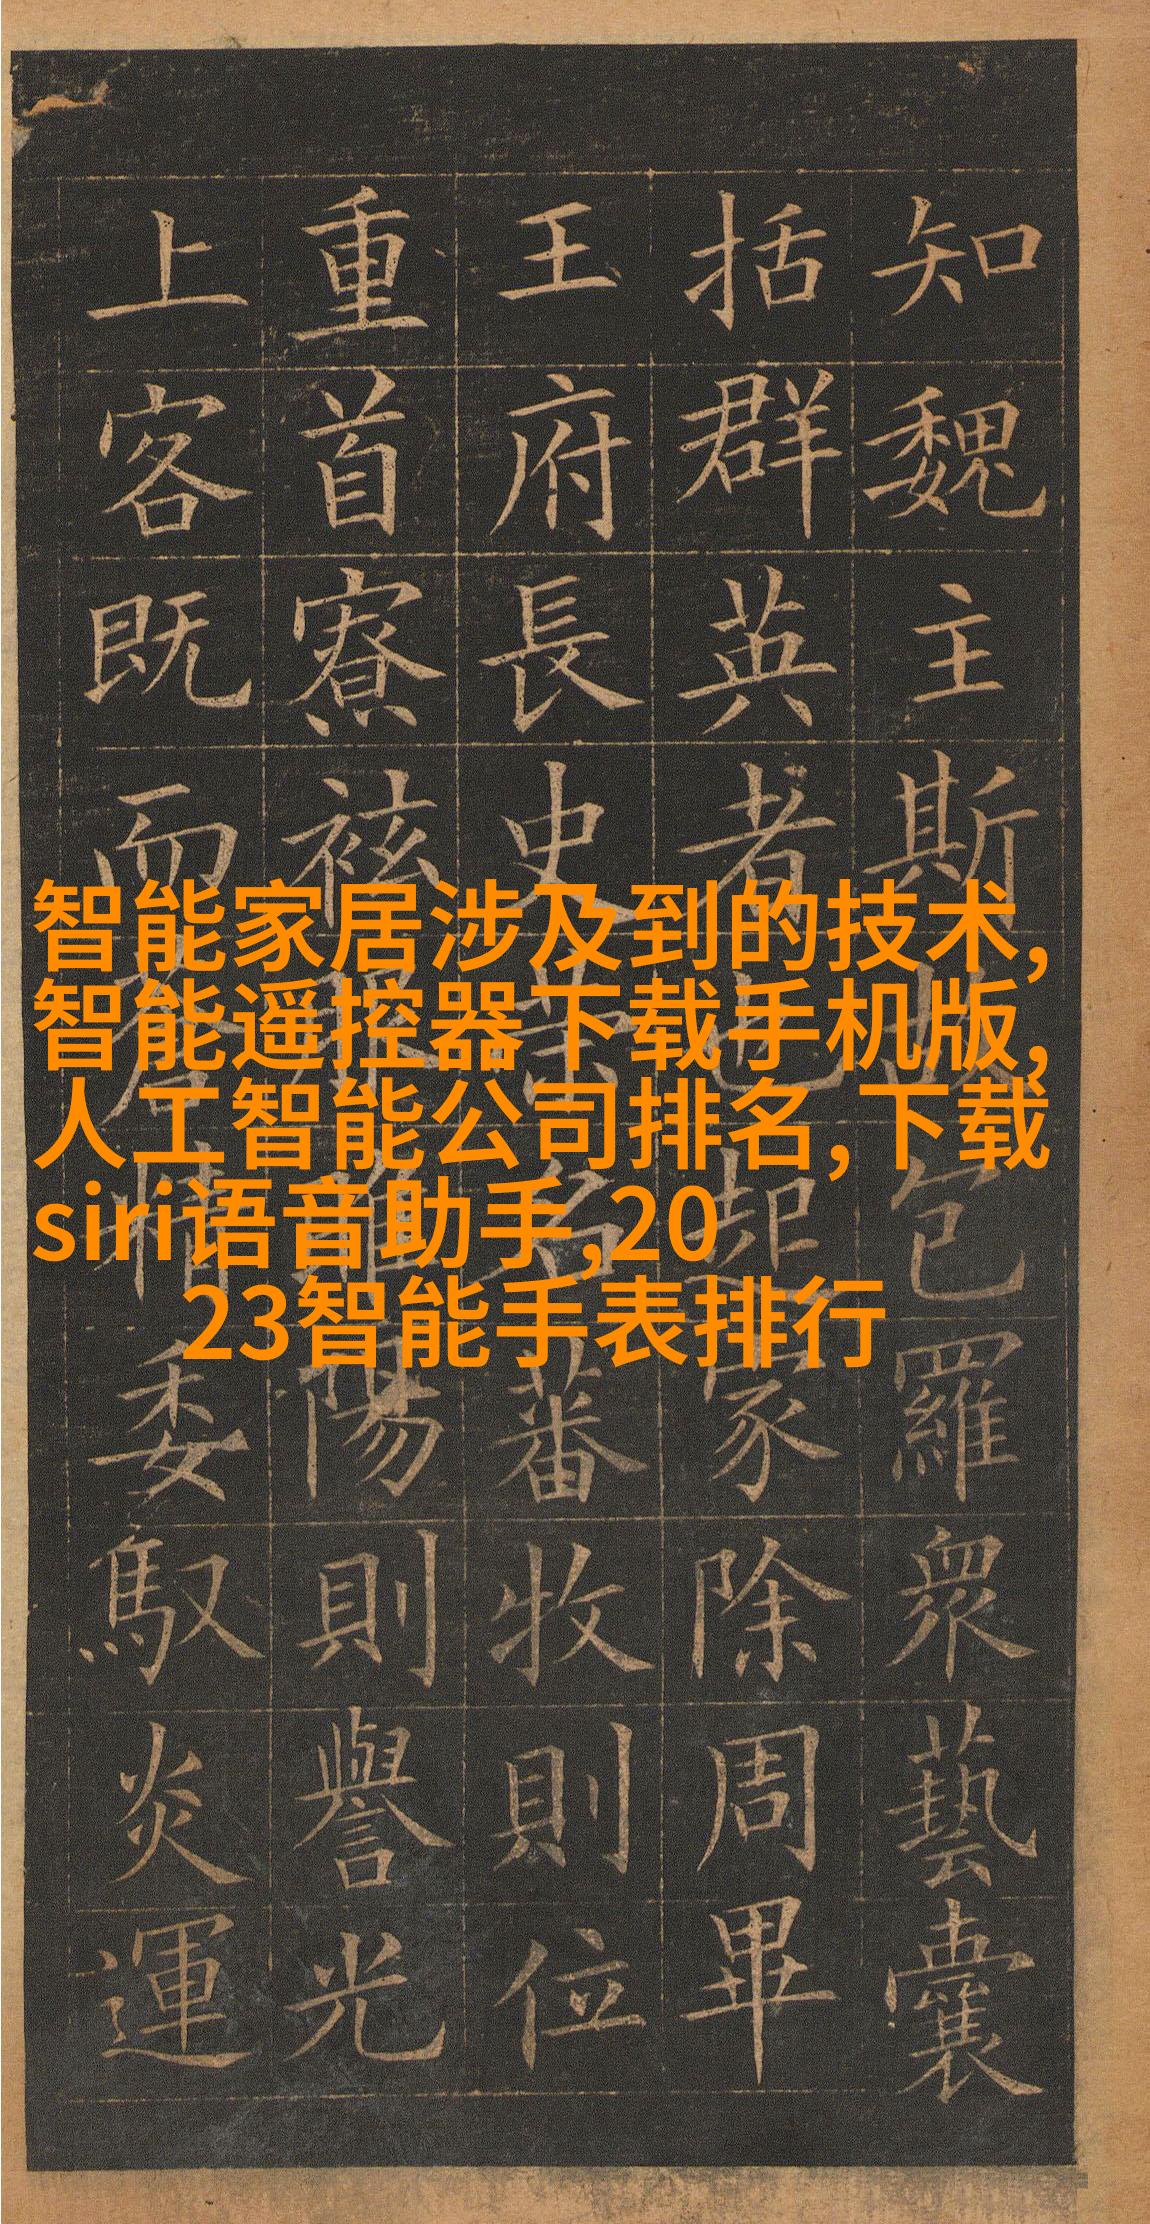 知魏主斯故包羅衆藝囊
括群英者已起家除周畢
王府長史名蕃牧則位
重首寮陽則譽光
上客既而情委馭炎運
智能家居涉及到的技术,
智能遥控器下载手机版,
人工智能公司排名,下载
siri语音助手,20
23智能手表排行